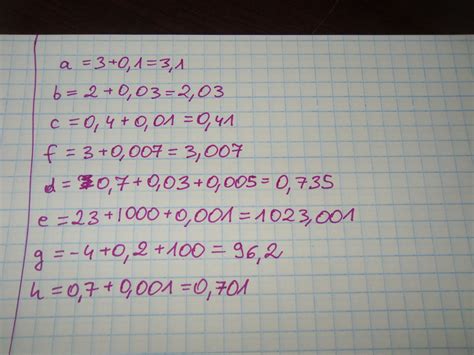 a = 3+0,1=3,1
b = 2 + 0,03 = 2,03
c = 0,4 + 0,01 = 0,41
f = 3 + 0,007 = 3,007
d = 0,7 + 0,03 + 0,005 = 0,735
e = 23 + 1000 + 0,001 = 1023,001
g = -4 + 0,2 + 100 = 96,2
h = 0,7 + 0,001 = 0,701